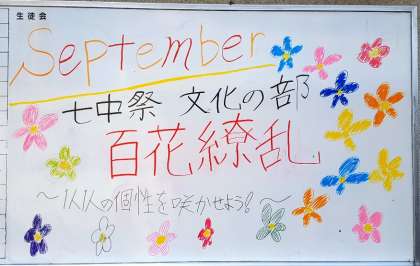 生徒会
September
七中祭 文化の部
百花繚乱
〜1人1人の個性を咲かせよう!〜